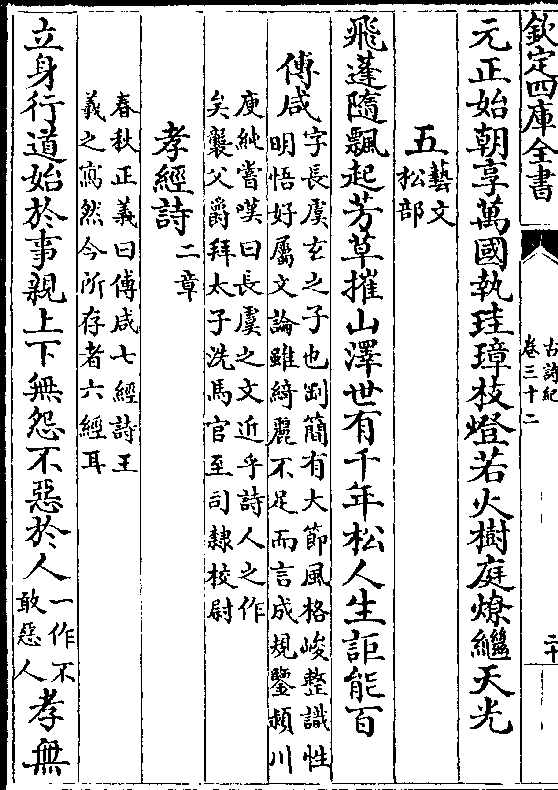 欽定四庫全書
古詩紀
卷三十二
二十
元正始朝享萬國執珪璋枝燈若火樹庭燎繼天光
五藝文
松部
飛蓬隨飄起芳草摧山澤世有千年松人生詎能百
傅咸字長虞玄之子也剛簡有大節風格峻整識性
明悟好屬文論雖綺麗不足而言成規鑒潁川
庾純嘗嘆曰長虞之文近乎詩人之作
矣襲父爵拜太子洗馬官至司隸校尉
孝經詩二章
春秋正義曰傅咸七經詩王
羲之寫然今所存者六經耳
立身行道始於事親上下無怨不惡於人一作不
敢惡人孝無